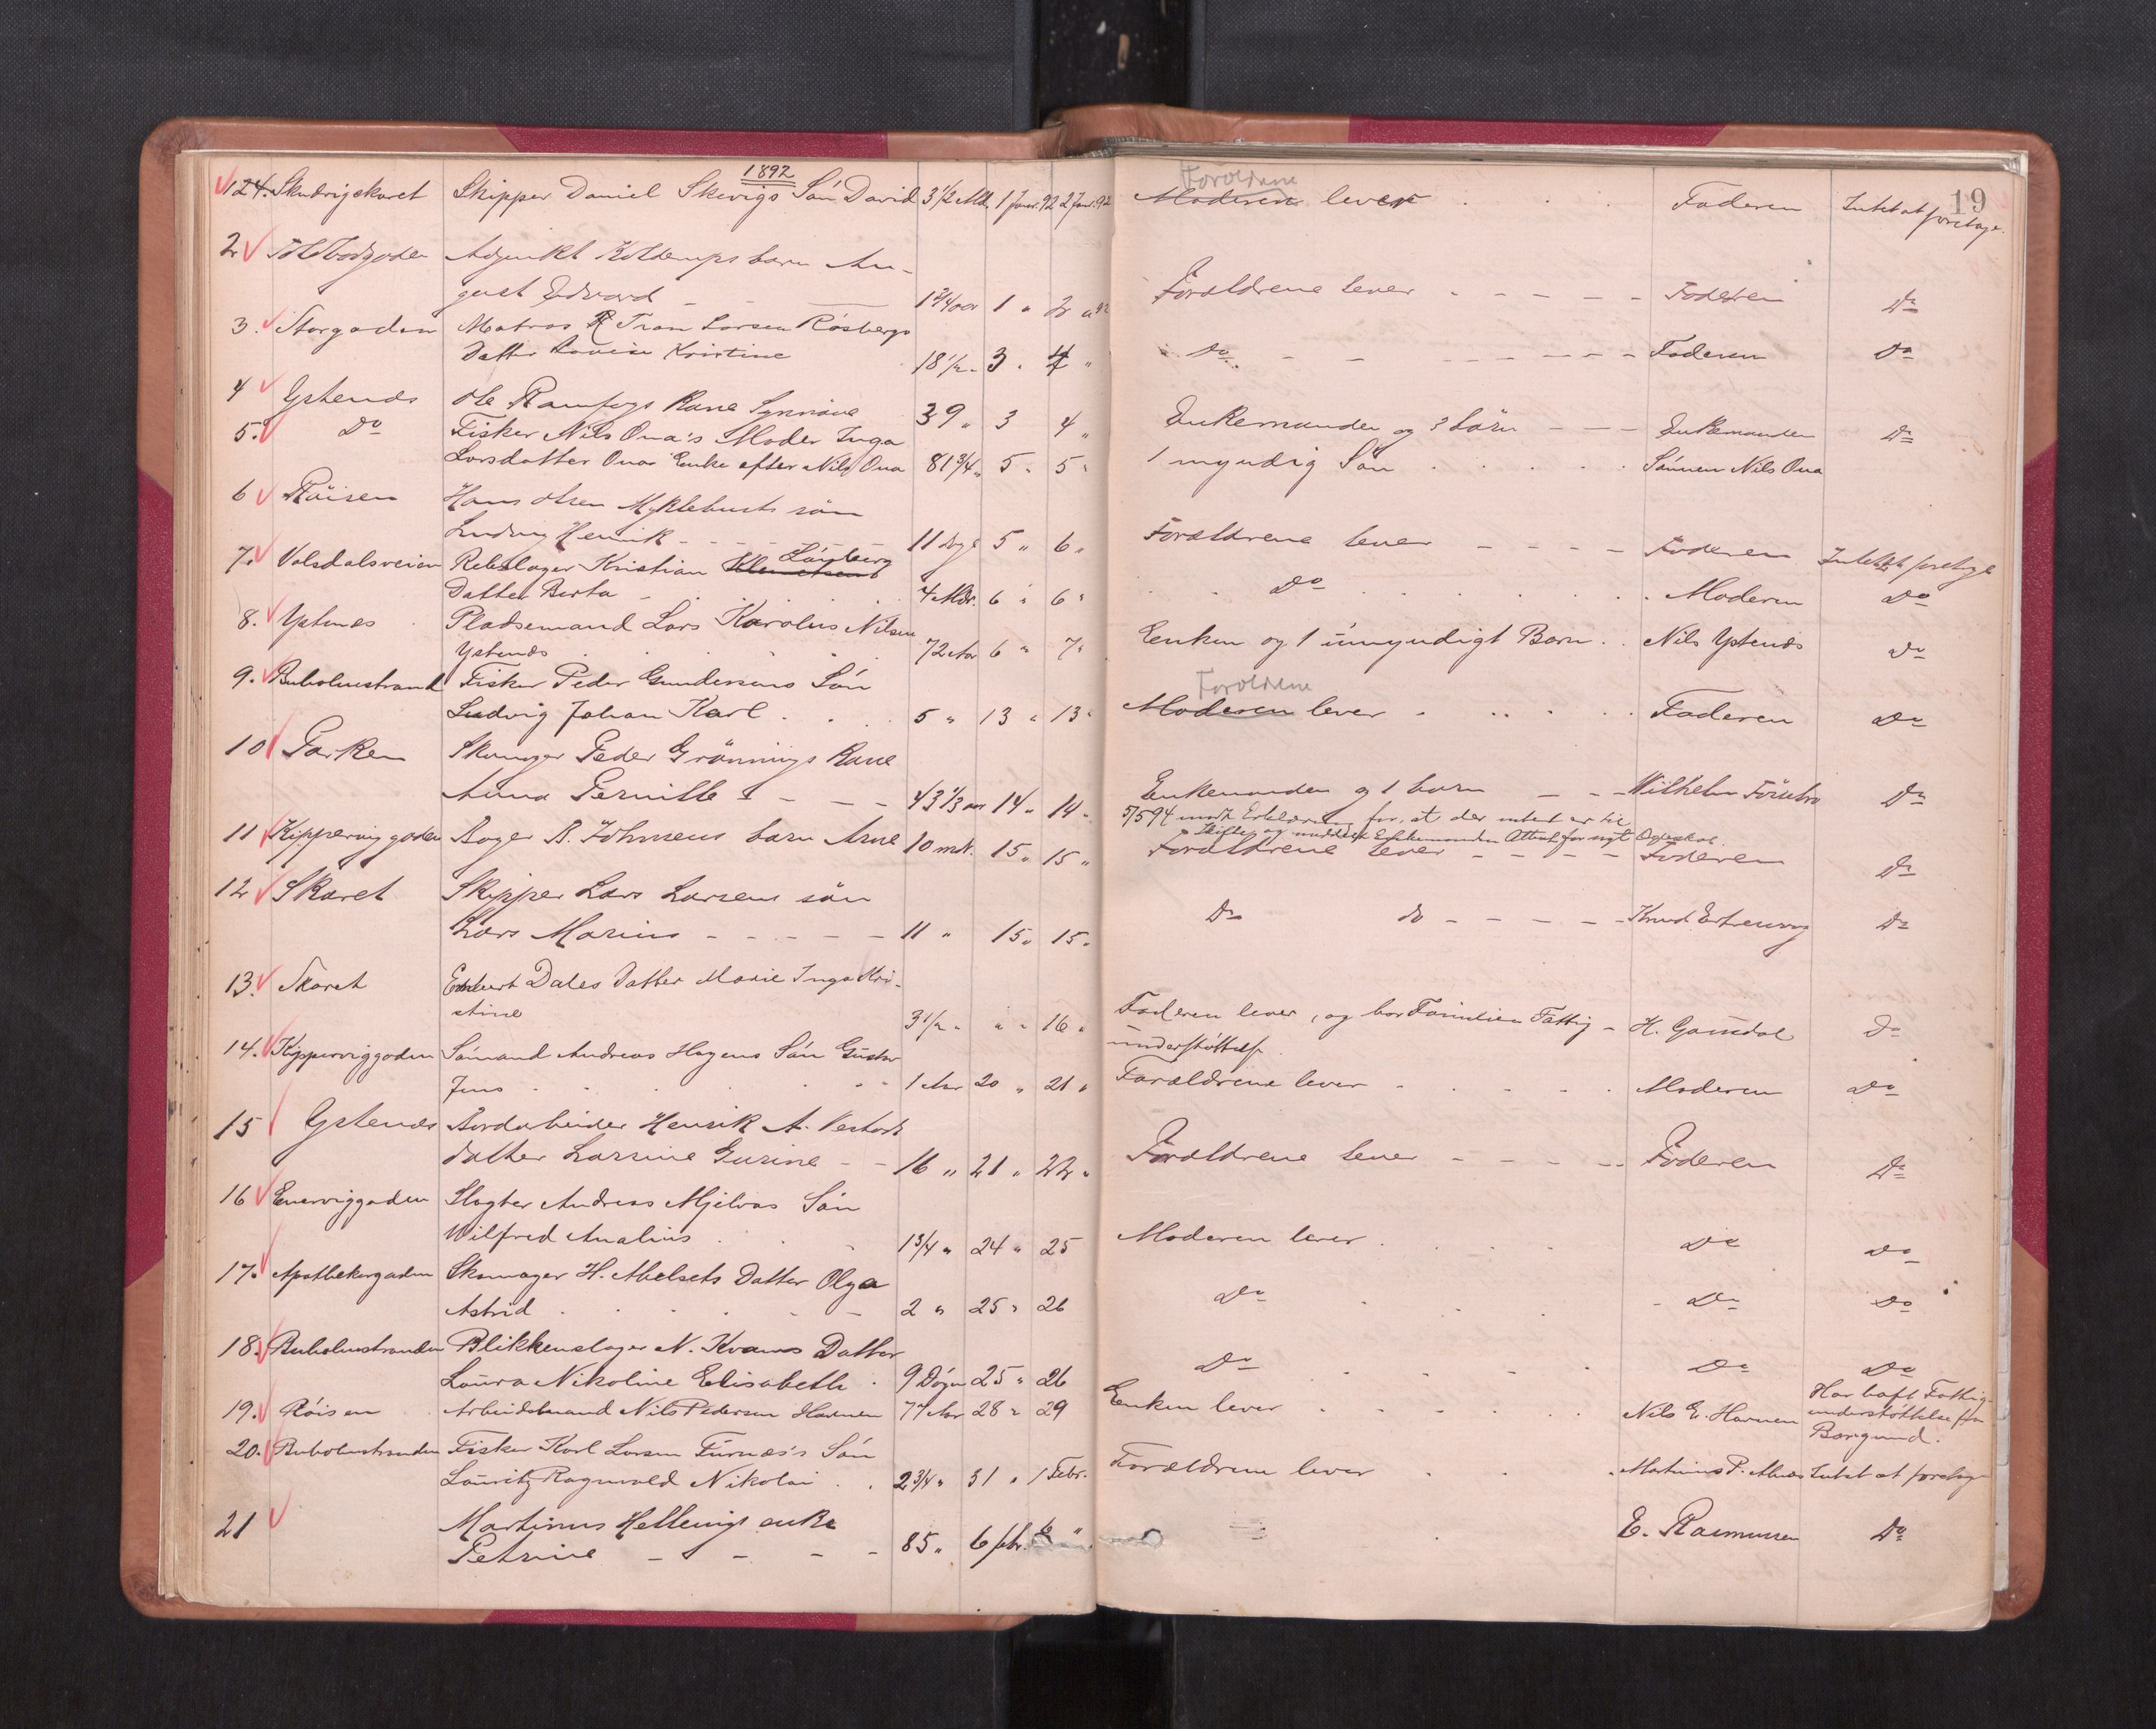 1892
19
124. Skudvigskaret Skipper Daniel Skevigs Sön David 3 1/2 Md. 1 Janr. 92 2 Janr. 92 Moderen Foroldrene lever Faderen Intet at foretage.
2 Toldbodgaden Adjunkt Koldemps barn Au-
gust Edvard 1 3/4 aar 1 " 2 " 92 Foroldrene lever Faderen Do
3. Storgaden Matros R Tran Larsen Rösbergs
Datter Lovise Kristine 18 1/2 " 3 " 4 " Do Faderen Do
4 Ystenæs Ole Ramfogs Kone Synnöve 39 " 3 4 " Enkemanden og 3 börn Enkemanden Do
5. Do Fisker Nils Ona's Moder Inga
Larsdatter Ona Enke efter Nils Ona 81 3/4 " 5 " 5 " 1 myndig Sön Sönnen Nils Ona
6 Röisen Hans Olsen Myklebusts sön
Ludvig Henrik 11 dage 5 " 6 " Foroldrene lever Faderen Intet at foretage
7. Volsdalsveien Rebslager Kristian Klemetsens Lönberg
Datter Berta 4 Mdr. 6 " 6 " Do Moderen Do
8. Ystenæs Pladsemand Lars Karolus Nilsen
Ystenæs 72 Aar 6 " 7 " Enken og 1 umyndigt Barn Nils Ystenæs Do
9. Buholmstrand Fisker Peder Gundersens Sön
Ludvig Johan Karl 5 " 13 " 13 " Moderen Foroldrene lever Faderen Do
10 Parken Skomager Peder Grönnings Kone
Anna Pernille 43 1/3 aar 14 " 14 " Enkemanden og 1 barn Wilhelm Do
5/5 94 modt. Erklæring for, at der intet er til
Skifte og meddelt Enkemanden Attest for nyt Ægteskab.
11 Kipperviggaden Bager B. Johnsens barn Arne 10 mdr. 15 " 15 " Foroldrene lever Faderen Do
12 Skaret Skipper Lars Larsens sön
Lars Marius 11 " 15 " 15 " Do do Knud Do
13. Skaret Dales Datter Marie Inga Kri-
stine 3 1/2 " " " 16 " Faderen lever, og har Familien Fattig-
understöttelse H. Gamdal Do
14. Kipperviggaden Sömand Andreas Hagens Sön Gustav
Jens 1 Aar 20 " 21 " Foræeldrene lever Moderen Do
15 Ystenæs Jordarbeider Henrik A.
datter Larsine Gurine 16 " 21 " 22 " Foroldrene lever Faderen Do
16 Enerviggaden Slagter Andreas Mjelvas Sön
Wilfred Analius 1 3/4 " 24 " 25 Moderen lever Do Do
17. Apothekergaden Skomager H. Abelsets Datter Olga
Astrid 2 " 25 " 26 Do Do Do
18. Buholmstranden Blikkenslager N. Kvams Datter
Laura Nikoline Elisabeth 9 Dögn 25 " 26 Do Do Do
19. Röisen Arbeidsmand Nils Pedersen Havnen 77 Aar 28 " 29 Enken lever Nils E. Havnen Har haft Fattig-
understöttelse fra
Borgund.
20. Buholmstranden Fisker Karl Larsen Furnæs's Sön
Lauritz Ragnvald Nikolai 2 3/4 " 31 " 1 Febr. Forældrene lever Martinus P. Alnæs Intet at foretage
21 Martinus Hellevigs enke
Petrine 85 " 6 febr. 6 " E. Rasmussen Do